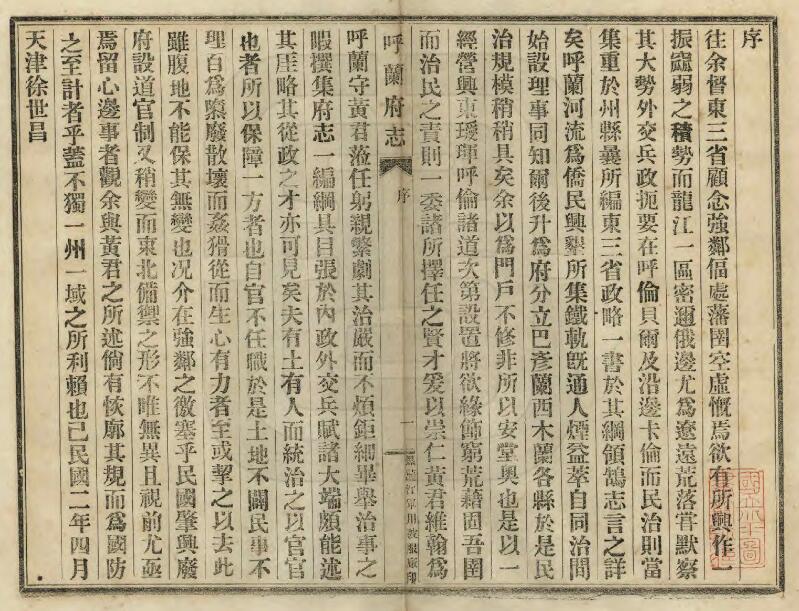 序
往余督東三省顧念強鄰偪處藩圉空虛慨焉欲有所興作一
振寙弱之積勢而龍江一區密邇俄邊尤為遼遠荒落嘗默察
其大勢外交兵政扼要在呼倫貝爾及沿邊卡倫而民治則當
集重於州縣曩所編東三省政略一書於其綱領鵠志言之詳
矣呼蘭河流為僑民興墾所集鐵軌旣通人煙益萃自同治間
始設理事同知爾後升為府分立巴彥蘭西木蘭各縣於是民
治規模稍稍具矣余以為門戶不修非所以安堂奧也是以一
經營興東璦琿呼倫諸道次第設置將欲緣飾窮荒藉固吾圉
而治民之責則一委諸所擇任之賢才爰以崇仁黃君維翰為
呼蘭府志
序
一
黑龍江軍用被服廠印
呼蘭守黃君蒞任躬親繁劇其治嚴而不煩鉅細畢舉治事之
暇撰集府志一編綱具目張於內政外交兵賦諸大端頗能述
其厓略其從政之才亦可見矣夫有土有人而統治之以官官
也者所以保障一方者也自官不任職於是土地不闢民事不
理百為隳廢散壞而姦猾從而生心有力者至或挈之以去此
雖腹地不能保其無變也況介在強鄰之徼塞乎民國肇興廢
府設道官制又稍變而東北備禦之形不唯無異且視前尤亟
焉留心邊事者觀余與黃君之所述倘有恢廓其規而為國防
之至計者乎蓋不獨一州一域之所利賴也已民國二年四月
天津徐世昌